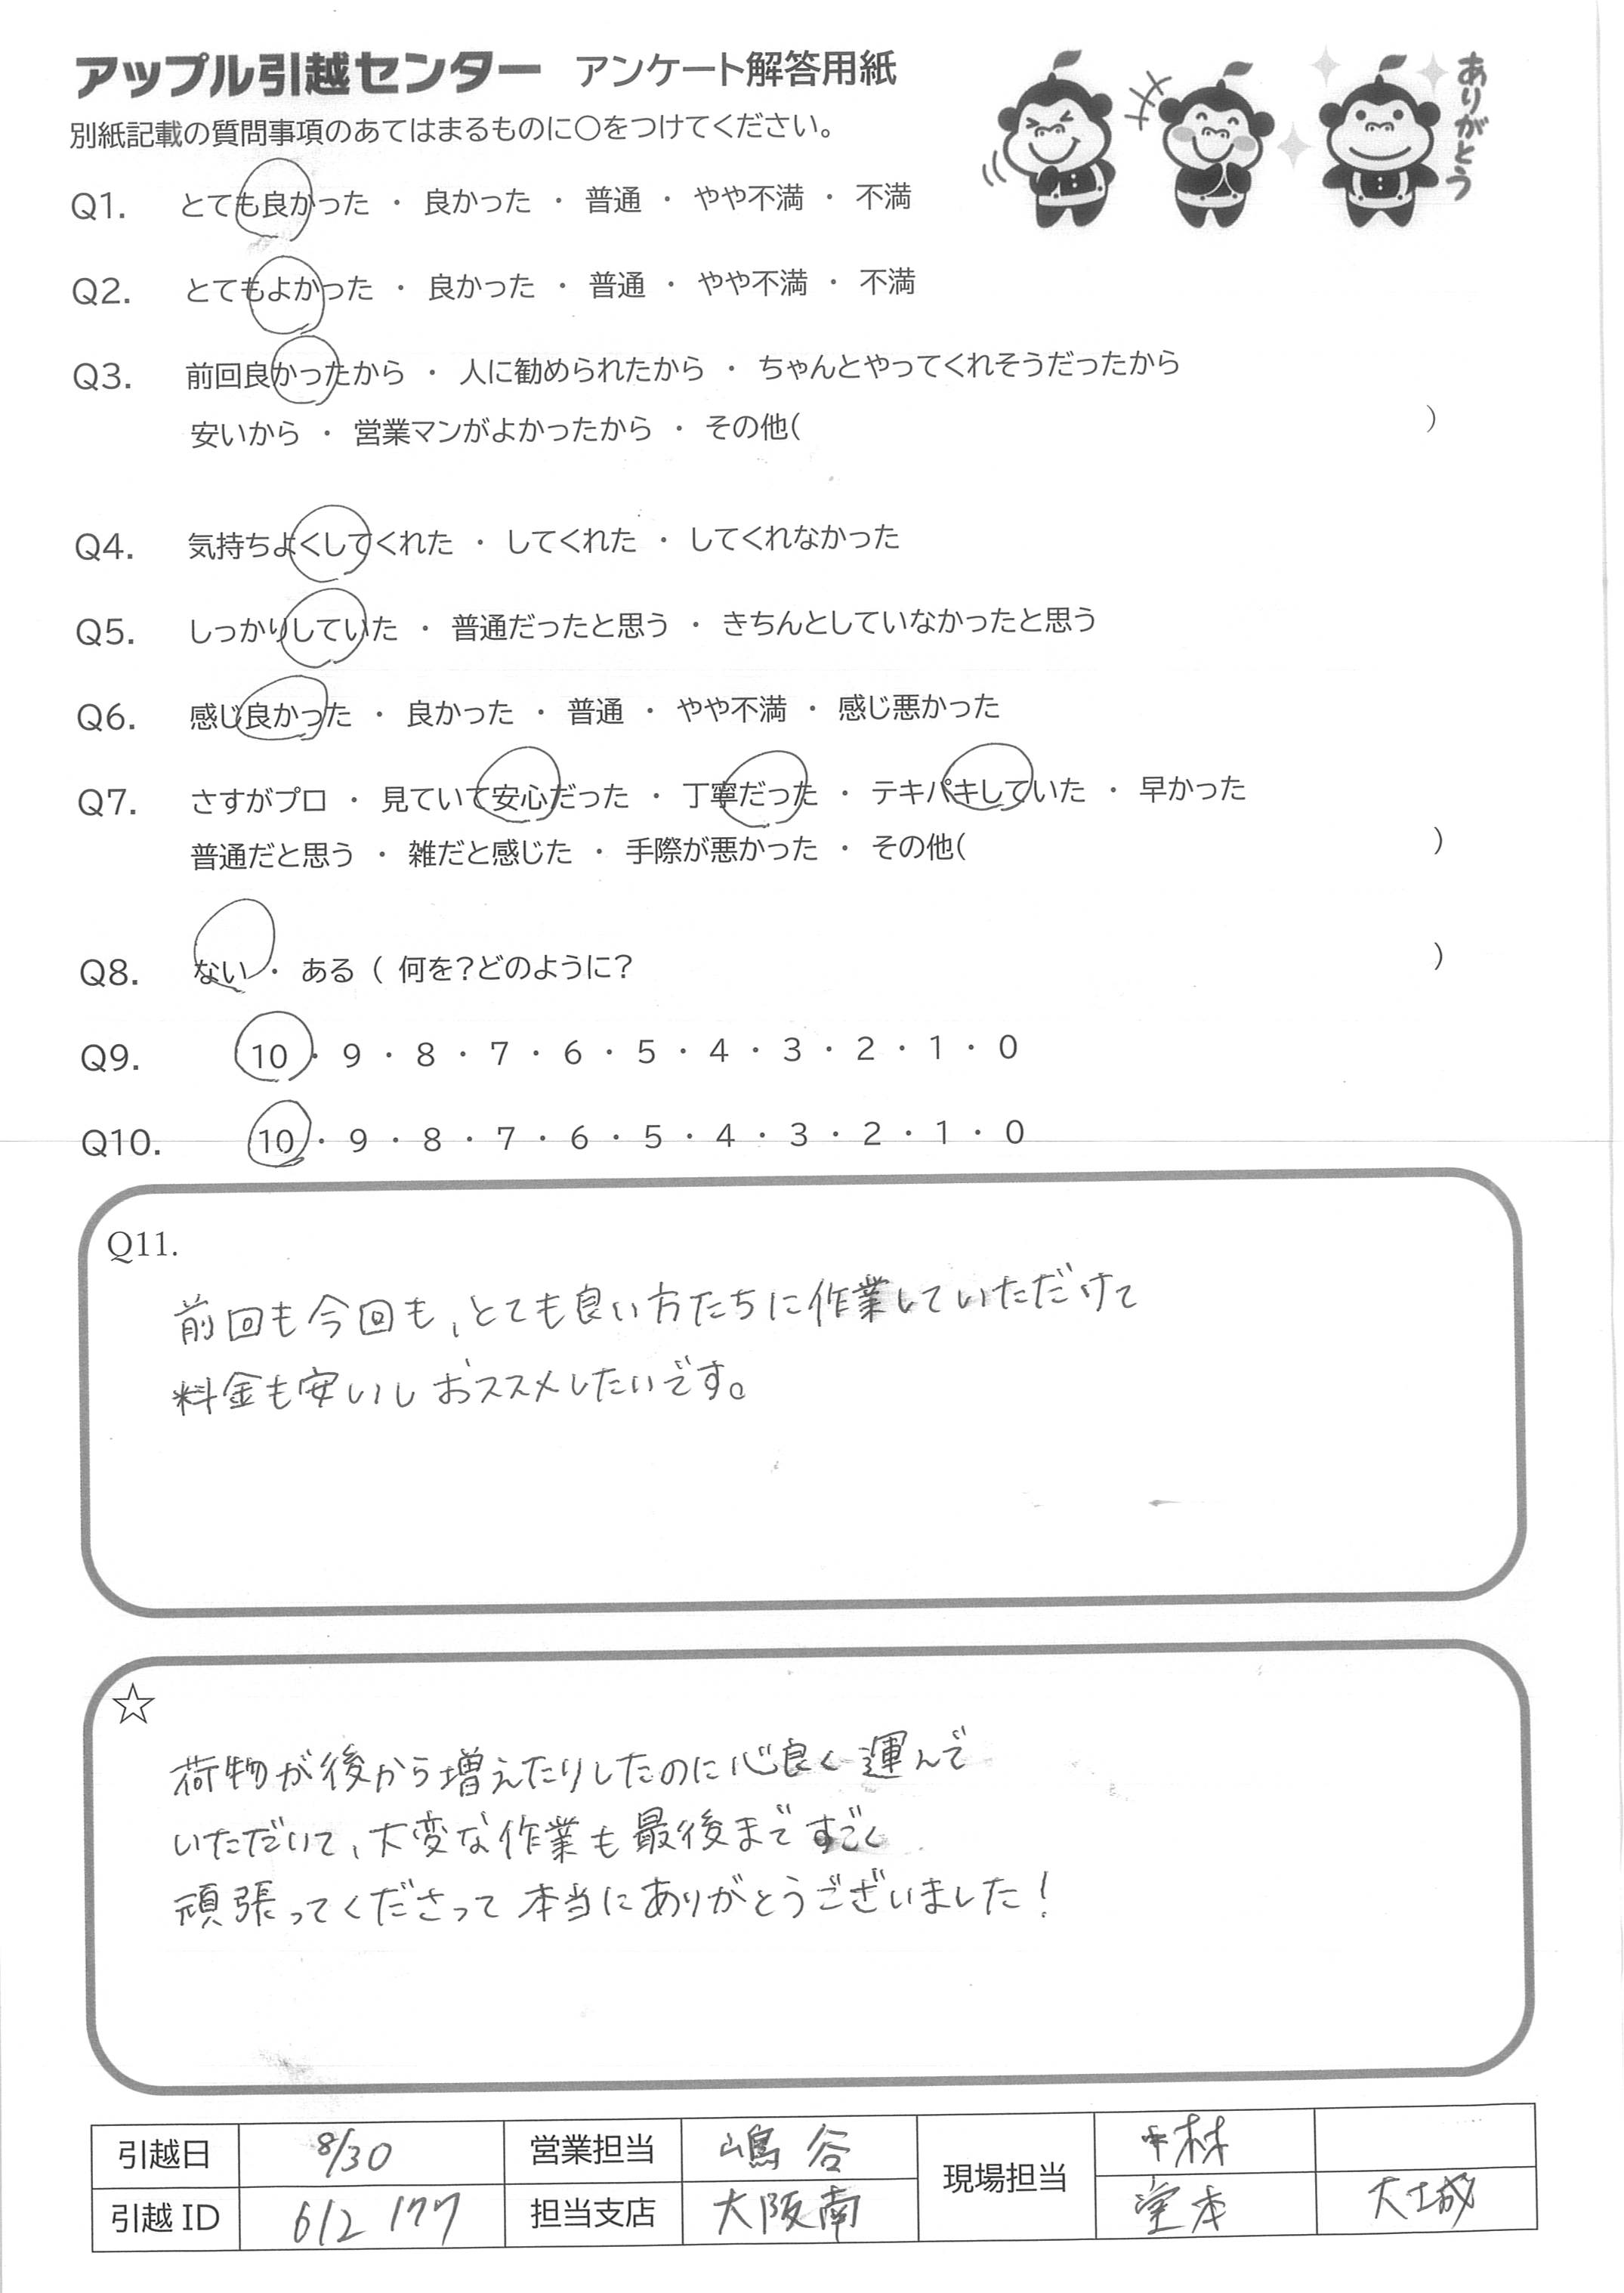 アップル引越センター アンケート解答用紙
ありがとう
別紙記載の質問事項のあてはまるものに○をつけてください。
Q1. とても良かった ・ 良かった ・ 普通 ・ やや不満 ・ 不満
Q2. とてもよかった ・ 良かった ・ 普通 ・ やや不満 ・ 不満
Q3. 前回良かったから ・ 人に勧められたから ・ ちゃんとやってくれそうだったから
安いから ・ 営業マンがよかったから ・ その他( )
Q4. 気持ちよくしてくれた ・ してくれた ・ してくれなかった
Q5. しっかりしていた ・ 普通だったと思う ・ きちんとしていなかったと思う
Q6. 感じ良かった ・ 良かった ・ 普通 ・ やや不満 ・ 感じ悪かった
Q7. さすがプロ ・ 見ていて安心だった ・ 丁寧だった ・ テキパキしていた ・ 早かった
普通だと思う ・ 雑だと感じた ・ 手際が悪かった ・ その他( )
Q8. ない ・ ある ( 何を?どのように? )
Q9. 10 ・ 9 ・ 8 ・ 7 ・ 6 ・ 5 ・ 4 ・ 3 ・ 2 ・ 1 ・ 0
Q10. 10 ・ 9 ・ 8 ・ 7 ・ 6 ・ 5 ・ 4 ・ 3 ・ 2 ・ 1 ・ 0
Q11.
前回も今回も、とても良い方たちに作業していただけて
料金も安いしおススメしたいです。
☆
荷物が後から増えたりしたのに心良く運んで
いただいて、大変な作業も最後まですごく
頑張ってくださって本当にありがとうございました!
引越日 8/30 営業担当 嶋谷 現場担当 中村
引越ID 612177 担当支店 大阪南 堂本 大城